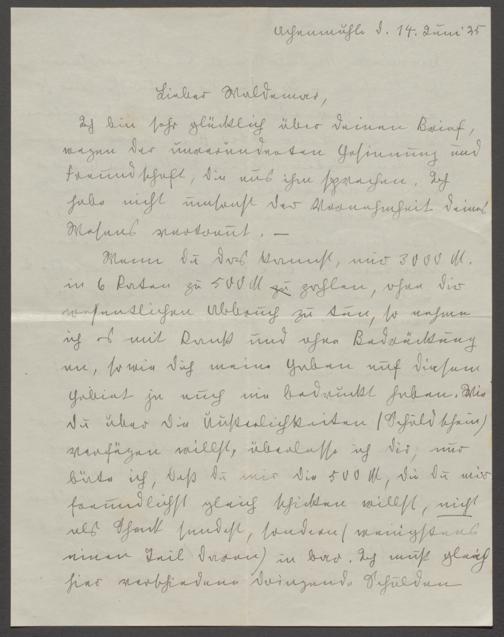 Achenmühle d. 14. Juni 25
Lieber Waldemar,
Ich bin sehr glücklich über deinen Brief,
wegen der unveränderten Gesinnung und
Freundschaft, die aus ihm sprechen. Ich
habe nicht umsonst der Vornehmheit deines
Wesens vertraut. —
Wenn du das kannst, mir 3000 M.
in 6 Raten zu 500 M zu zahlen, ohne dir
wesentlichen Abbruch zu tun, so nehme
ich es mit Dank und ohne Bedrückung
an, sowie dich meine Gaben auf diesem
Gebiet ja auch nie bedrückt haben. Wie
du über die Äußerlichkeiten (Schuldschein)
verfügen willst, überlasse ich dir, nur
bitte ich, daß du mir die 500 M, die du mir
freundlichst gleich schicken willst, nicht
als Scheck sendest, sondern (wenigstens
einen Teil davon) in bar. Ich muß gleich
hier verschiedene dringende Schulden